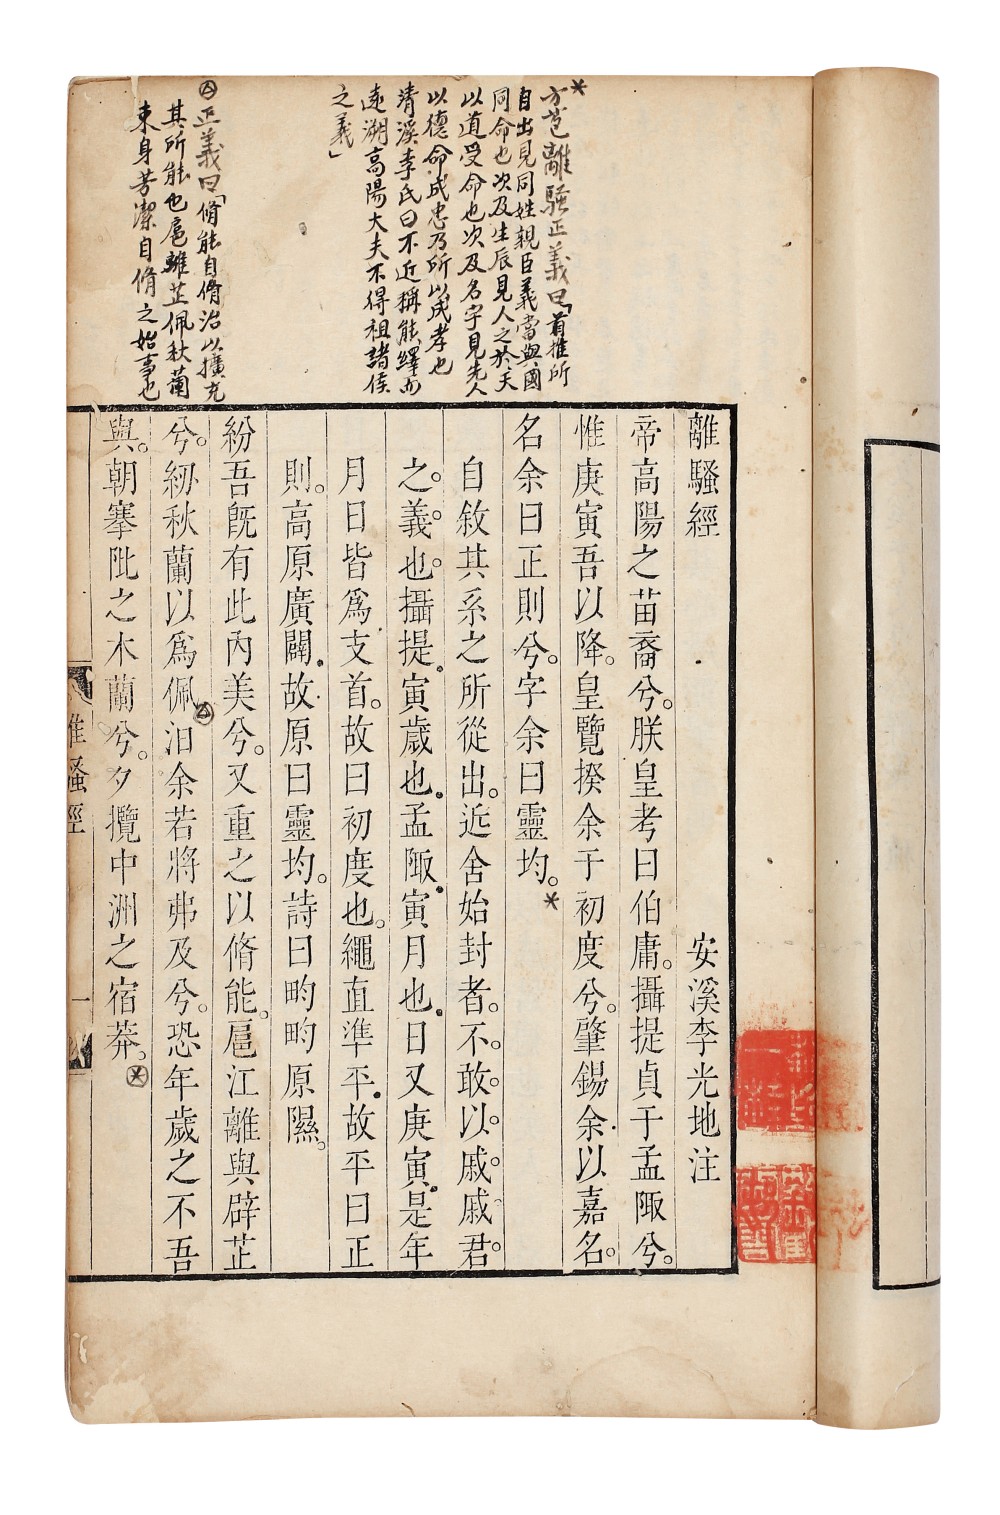 方苞離騷正義曰「首推所
自出見同姓親臣義當與國
同命也次及生辰見人之於天
以道受命也次及名字見先人
以德命成忠乃所以成孝也
清溪李氏曰不近稱熊繹而
遠溯高陽大夫不得祖諸侯
之義」
正義曰「脩能自脩治以擴充
其所能也扈離芷佩秋蘭
束身芳潔自脩之始事也
離騷經 安溪李光地注
帝高陽之苗裔兮。朕皇考曰伯庸。攝提貞于孟陬兮。
惟庚寅吾以降。皇覽揆余于初度兮。肇錫余以嘉名。
名余曰正則兮。字余曰靈均。
自敘其系之所從出。近舍始封者。不。敢。以。戚。戚。君。
之。義。也。攝提。寅歲也。孟陬。寅月也。日又庚寅。是年
月日皆爲支首。故曰初度也。繩直準平。故平曰正
則。高原廣闢。故原曰靈均。詩曰畇畇原隰。
紛吾旣有此內美兮。又重之以脩能。扈江離與辟芷
兮。紉秋蘭以爲佩。汩余若將弗及兮。恐年歲之不吾
與。朝搴阰之木蘭兮。夕攬中洲之宿莽。
離騷經 一